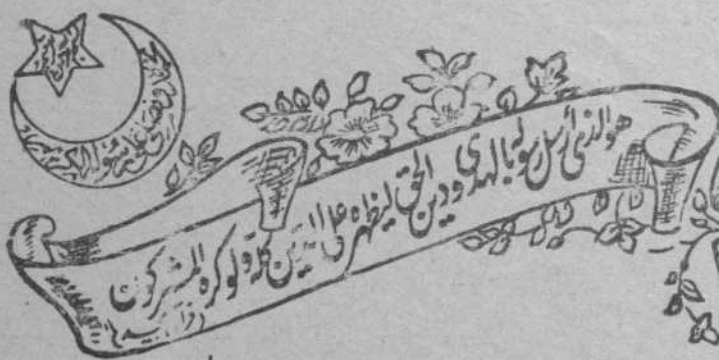 هو الذى أرسل رسوله بالهدى ودين الحق ليظهره على الدين كله ولو كره المشركون